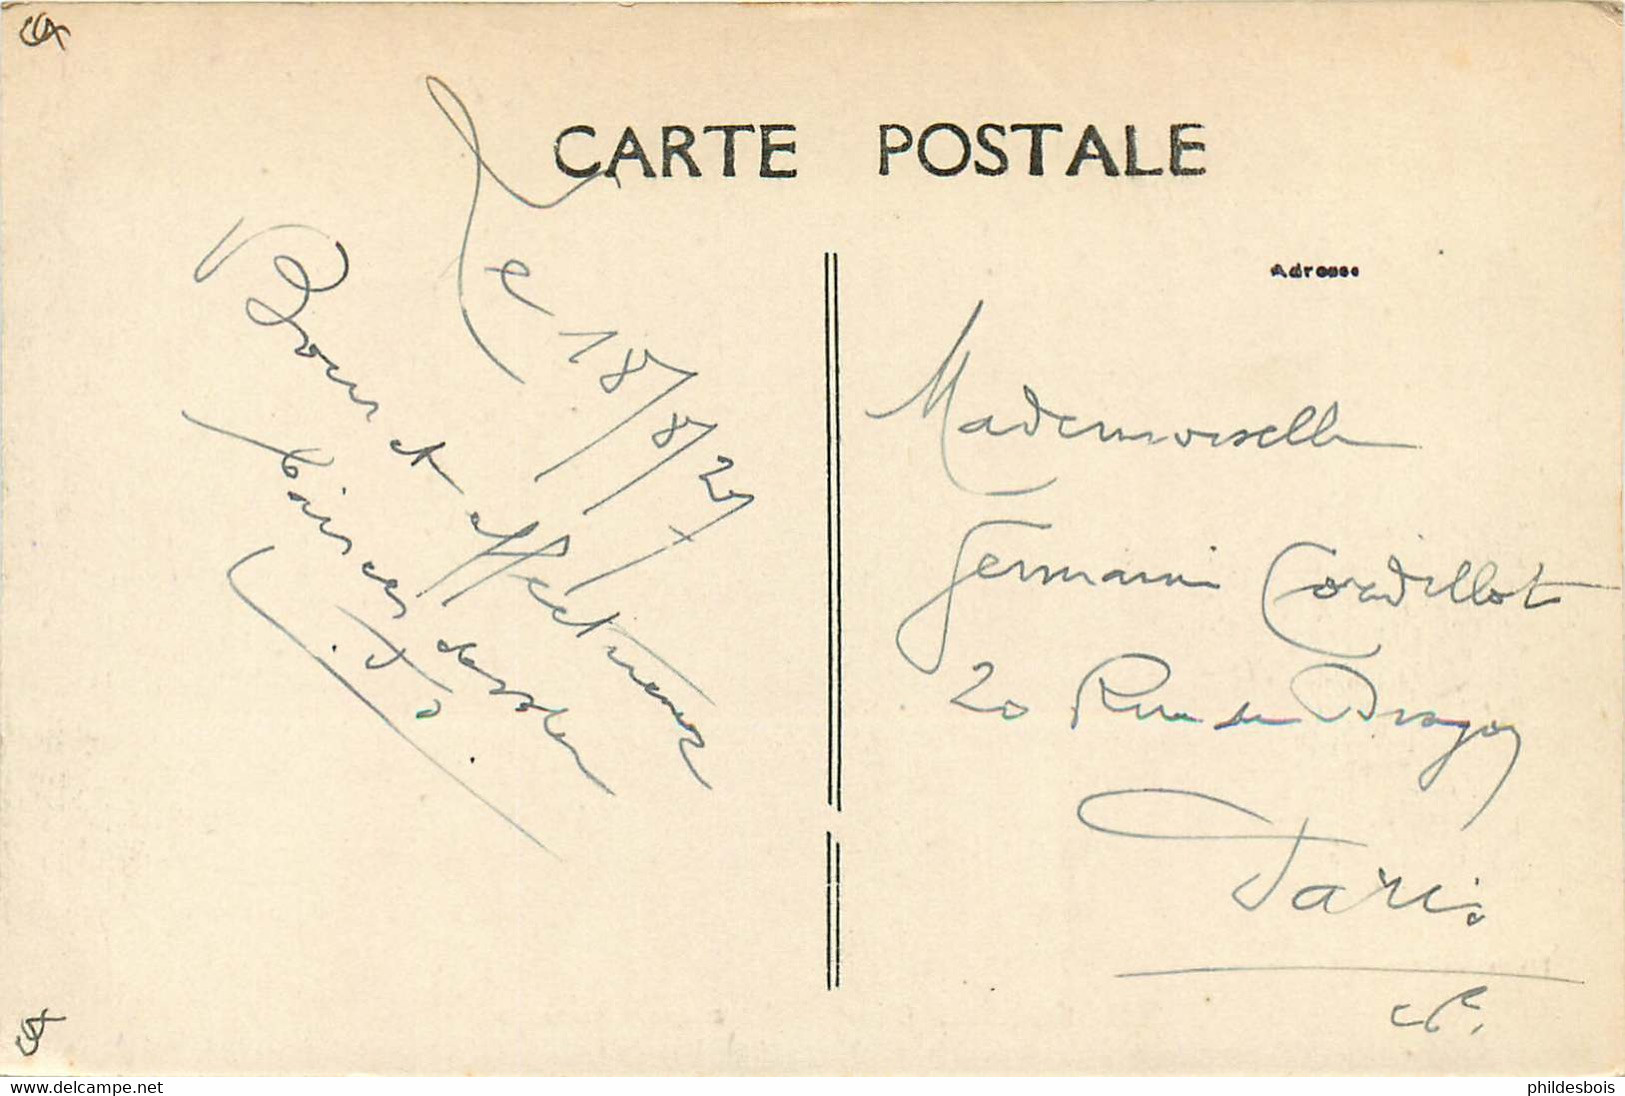 CARTE POSTALE
Adresse
Le 18/8/27
Bons et affectueux
baisers
Mademoiselle
Germaine Cordillot
20 Rue du Dragon
Paris
www.delcampe.net
phildesbois